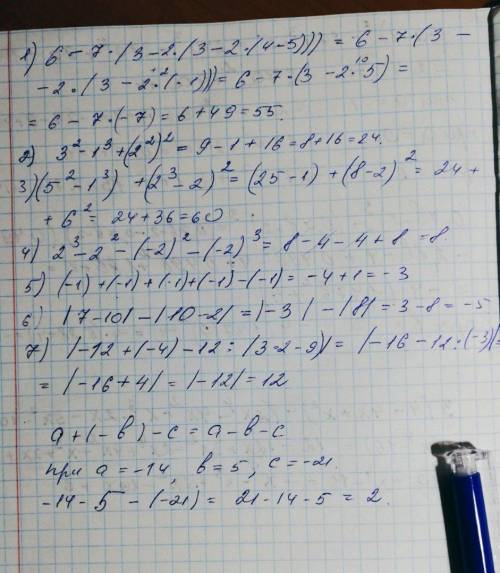 1) 6 - 7·(3-2·(3-2·(4-5))) = 6-7·(3-
-2·(3-2·(-1)))= 6-7·(3-2·5) =
= 6-7·(-7) = 6+49=55.
2) 3²-1³+(2²)² = 9-1+16=8+16=24.
3)(5²-1³) +(2³-2)² = (25-1)+(8-2)² = 24+
+6² = 24+36=60
4) 2³-2²-(-2)²-(-2)³ = 8-4-4+8=8.
5) (-1)+(-1)+(-1)+(-1)-(-1)= -4+1=-3
6) |7-10|-|10-2| =|-3|-|8|=3-8=-5
7) |-12+(-4)-12:(3·2-9)|= |-16-12:(-3)|=
= |-16+4| = |-12| = 12
a+(-b)-c=a-b-c
при a=-14, b=5, c=-21.
-14-5-(-21) = 21-14-5 = 2.